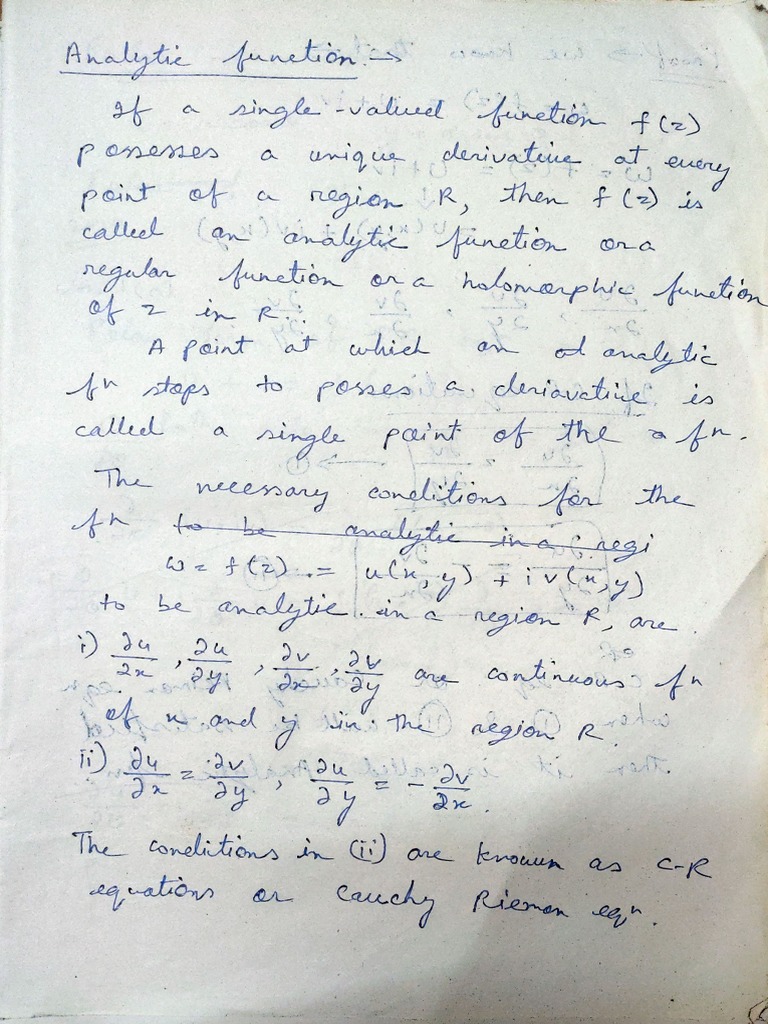 Analytic function →
If a single-valued function f(z)
possesses a unique derivative at every
point of a region R, then f(z) is
called an analytic function or a
regular function or a holomorphic function
of z in R.
A point at which an od analytic
fⁿ stops to posses a deriavative is
called a single point of the a fⁿ.
The necessary conditions for the
fⁿ to be analytic in a regi
w = f(z) = u(x, y) + i v(x, y)
to be analytic in a region R, are
i) ∂u/∂x, ∂u/∂y, ∂v/∂x, ∂v/∂y are continuous fⁿ
of x and y in the region R.
ii) ∂u/∂x = ∂v/∂y, ∂u/∂y = -∂v/∂x.
The conditions in (ii) are known as C-R
equations or Cauchy Rieman eqⁿ.